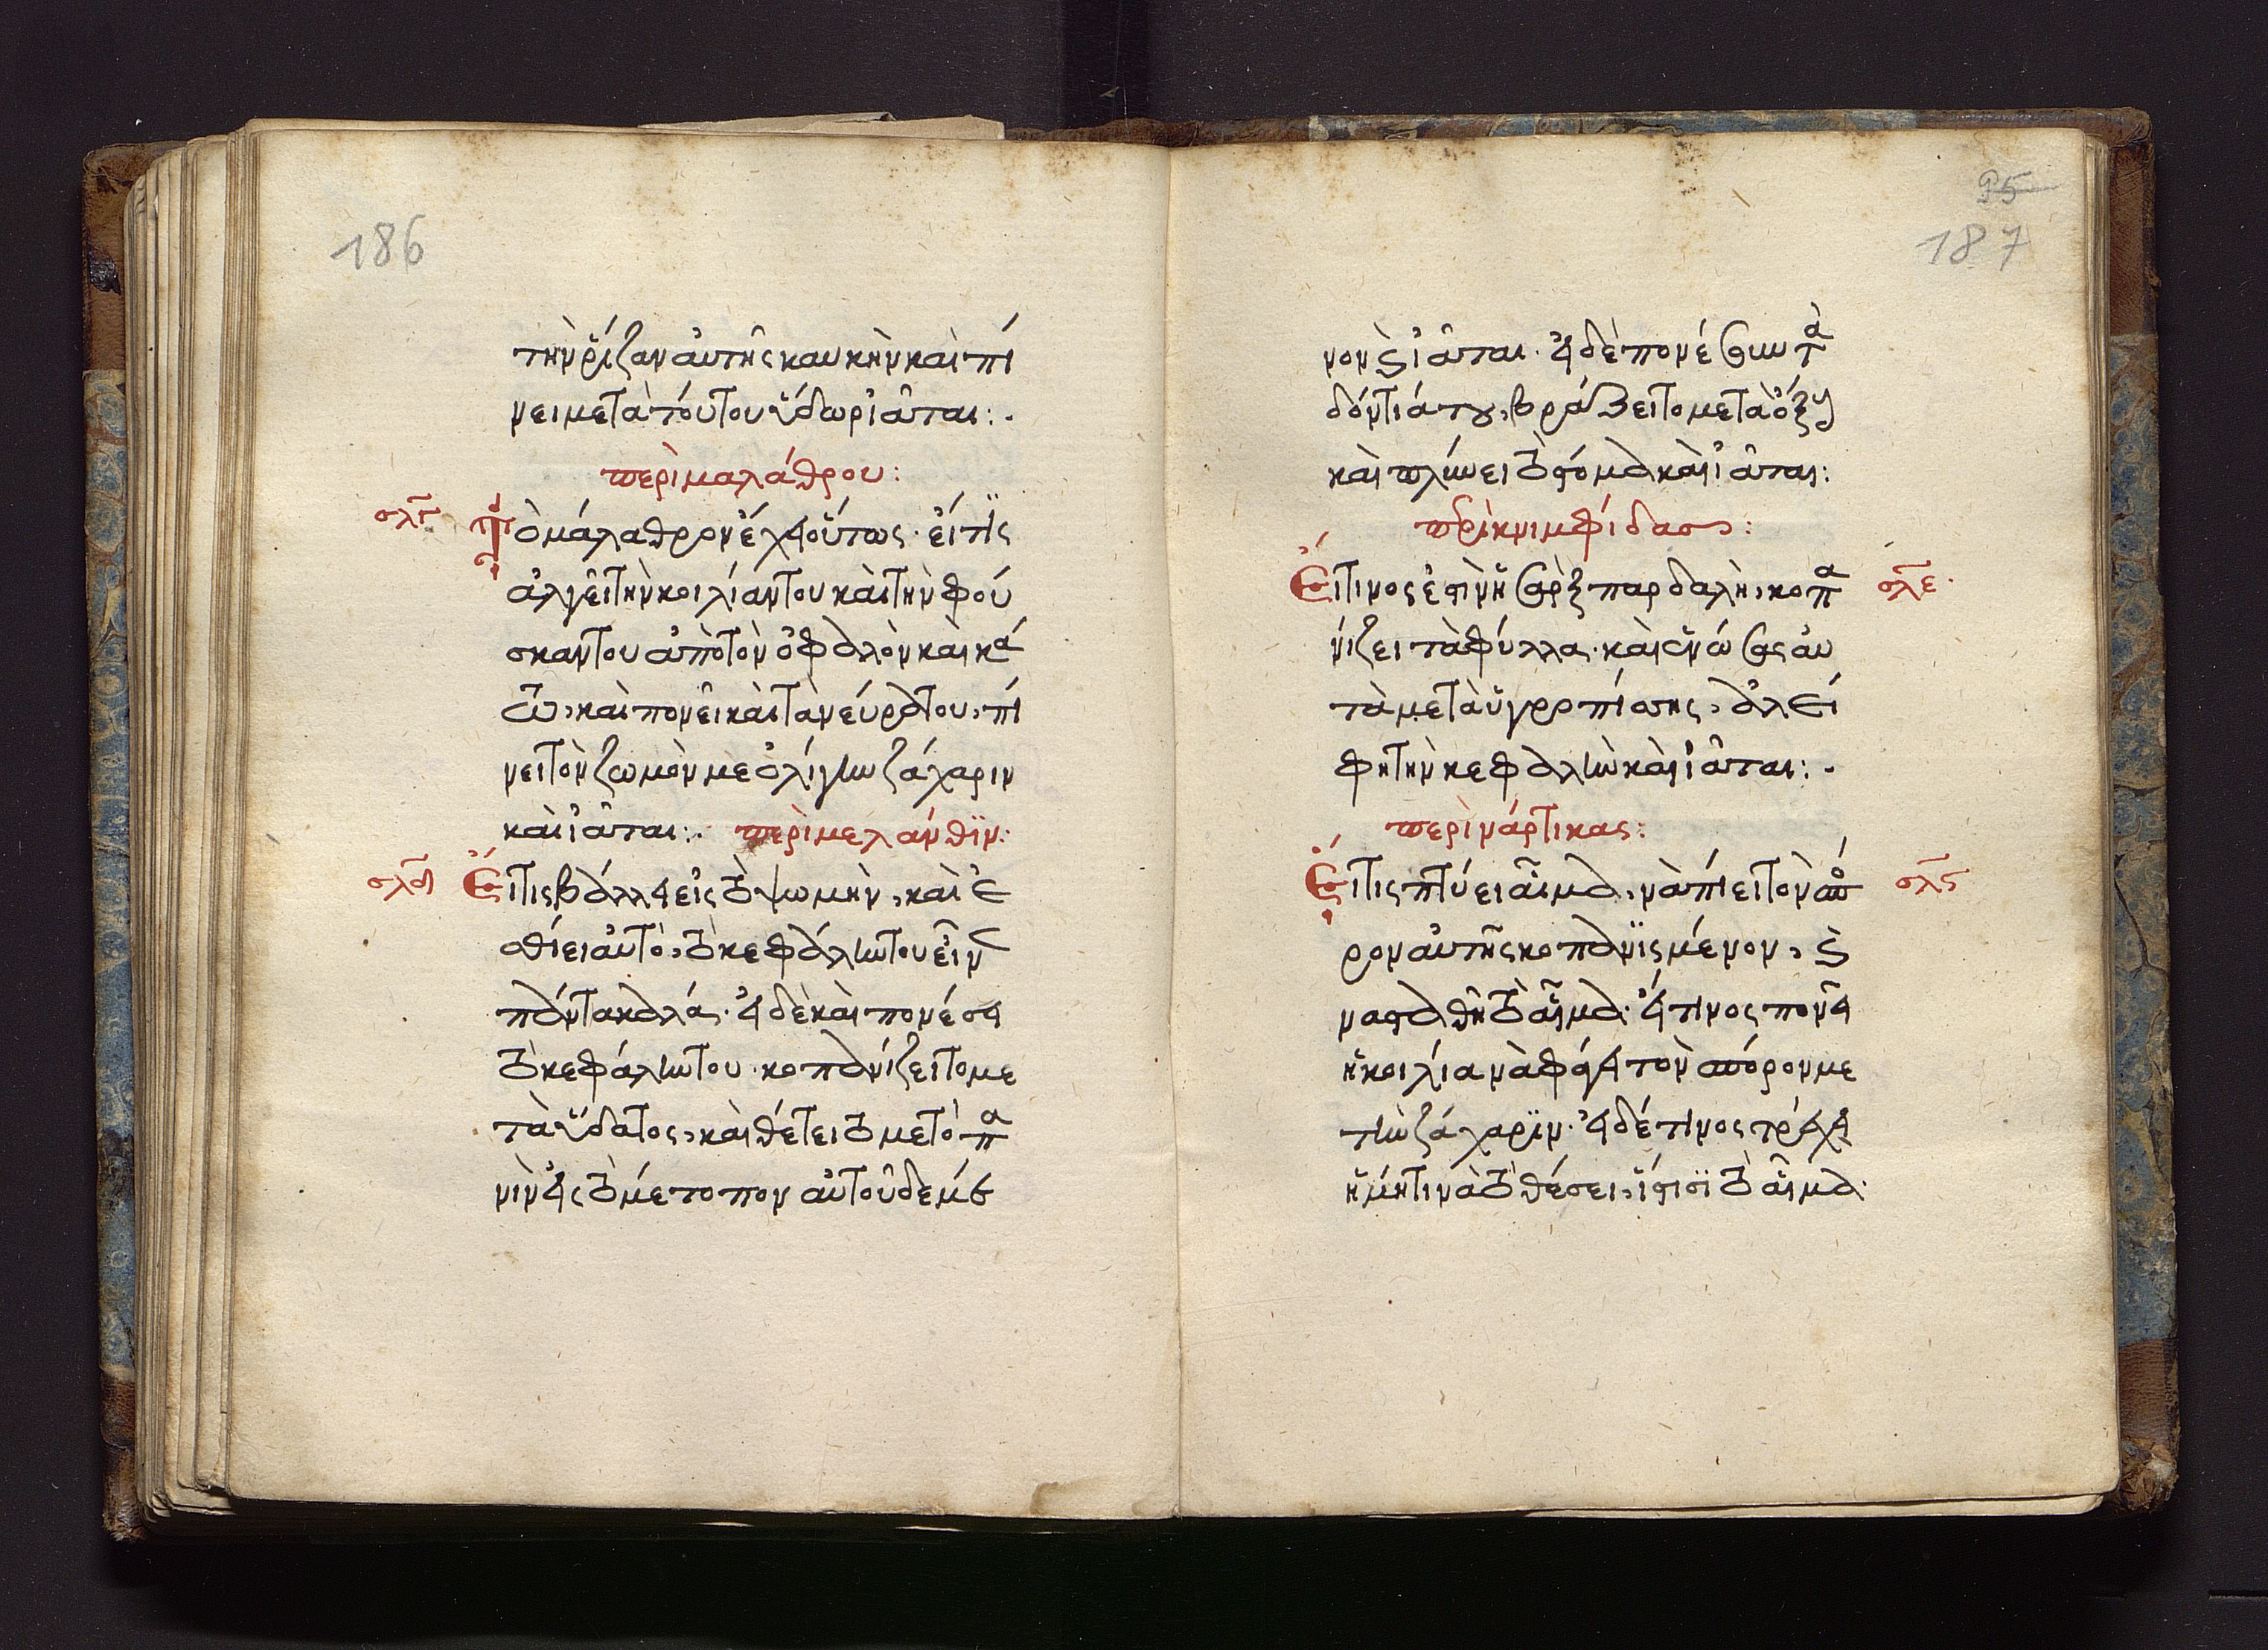 186
τὴν ῥίζαν αὐτῆς καυκὴν καὶ πί
νει μετὰ τούτου ὕδωρ ἰᾶται:.
περὶ μαλάθρου:
σλγ Τὸ μάλαθρον ἔχει οὕτως· εἴ τις
ἀλγεῖ τὴν κοιλίαν του καὶ τὴν φού
σκαν του ἀπὸ τὸν ὀφαλὸν καὶ κά
τω, καὶ πονεῖ καὶ τὰ νεύρα του, πί
νει τὸν ζωμὸν μὲ ὀλίγην ζάχαριν
καὶ ἰᾶται:. περὶ μελάνθιν:
σλδ Εἴ τις βάλλει εἰς τὸ ψωμὴν, καὶ ἐ
σθίει αὐτὸ, τὸ κεφάλην του εἶν
πάντα καλά. εἰ δὲ καὶ πονέσει
τὸ κεφάλην του. κοπανίζει το με
τὰ ὕδατος, καὶ θέτει το μετὸ πα
νὶν εἰς τὸ μέτοπον αὐτοῦ δεμέ
95
187
νον καὶ ἰᾶται. εἰ δὲ πονέσουν τὰ
δόντιά του, βράζει το μετὰ ὄξους
καὶ πλύνει τὸ στόμα καὶ ἰᾶται:
περὶ κνιμφίδας:
Εἴ τινος ἐστὶν ἡ σὰρξ παρδαλὴ, κοπα σλε
νίζει τὰ φύλλα. καὶ ἑνώσας αὐ
τὰ μετὰ ὑγροπίσσης, ἀλεί
φη τὴν κεφαλὴν καὶ ἰᾶται:.
περὶ νάρτικας:
Εἴ τις πτύει αἷμα, νὰ πίει τὸν σπό σλς
ρον αὐτῆς κοπανϊσμένον, καὶ
νὰ σταθῆ τὸ αἷμα. εἴ τινος πονεῖ
ἡ κοιλία νὰ φάγει τὸν σπόρον με
τὴν ζάχαρϊν. εἰ δέ τινος τρέχει
ἡ μύτι νὰ τὸ θέσει, ἵστισϊ τὸ αἷμα.